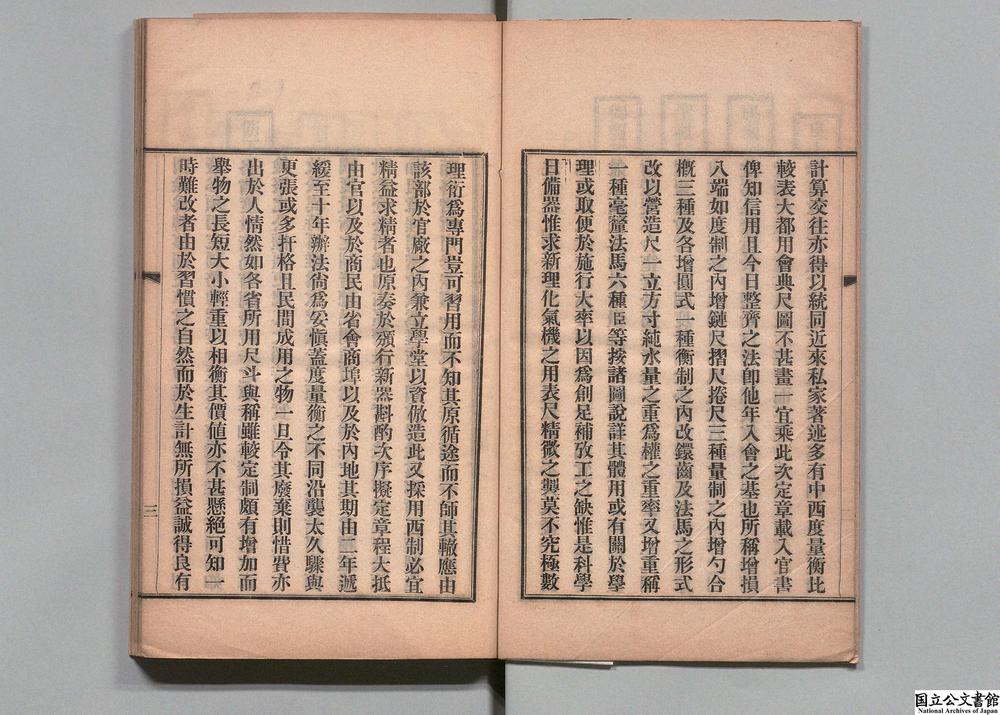 計算交往亦得以統同近來私家著述多有中西度量衡比
較表大都用會典尺圖不甚畫一宜乘此次定章載入官書
俾知信用且今日整齊之法卽他年入會之基也所稱增損
八端如度制之內增鏈尺摺尺捲尺三種量制之內增勺合
概三種及各增圓式一種衡制之內改鐶齒及法馬之形式
改以營造尺一立方寸純水量之重爲權之重率又增重稱
一種毫釐法馬六種臣等按諸圖說詳其體用或有關於學
理或取便於施行大率以因爲創足補攷工之缺惟是科學
日備器惟求新理化氣機之用表尺精微之興莫不究極數
理衍爲專門豈可習用而不知其原循途而不師其轍應由
該部於官廠之內兼立學堂以資倣造此又採用西制必宜
精益求精者也原奏於頒行新器斟酌次序擬定章程大抵
由官以及於商民由省會商埠以及於內地其期由二年遞
緩至十年辦法尙爲妥愼蓋度量衡之不同沿襲太久驟與
更張或多扞格且民間成用之物一旦令其廢棄則惜費亦
出於人情然如各省所用尺斗與稱雖較定制頗有增加而
舉物之長短大小輕重以相衡其價値亦不甚懸絕可知一
時難改者由於習慣之自然而於生計無所損益誠得良有
三
国立公文書館
National Archives of Japan